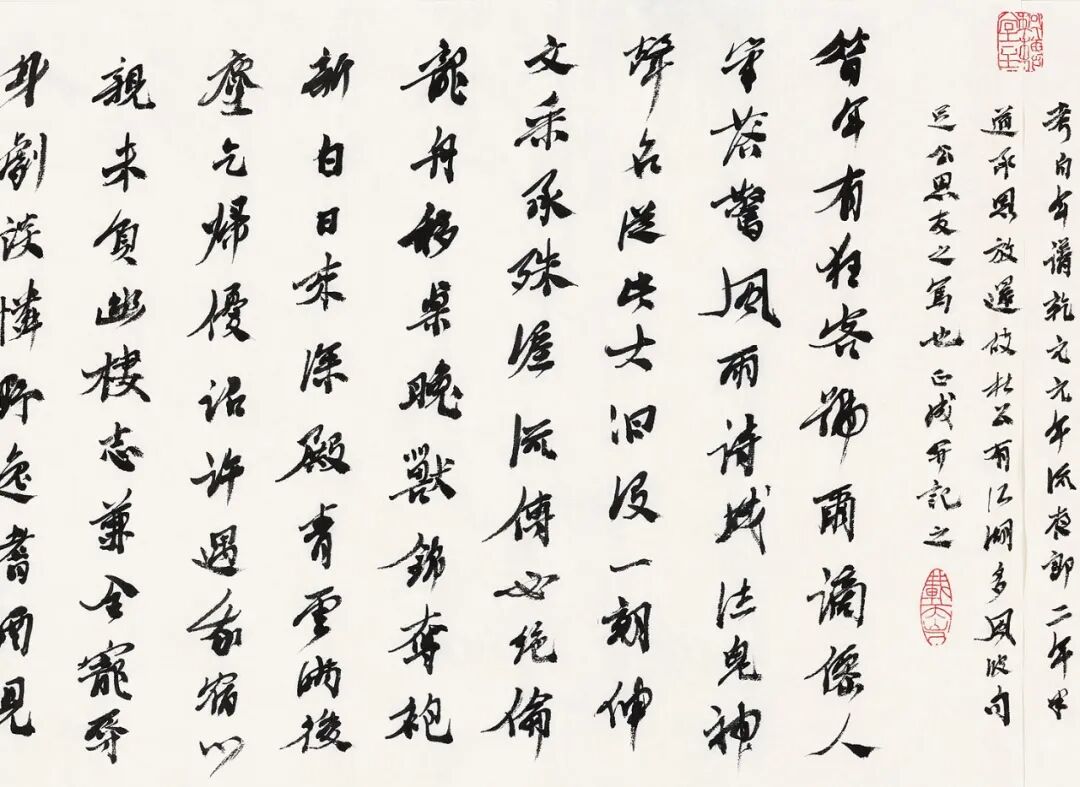 考白年譜乾元元年流夜郎二年半
道承恩放還故杜公有江湖多風波句
足公思友之篤也正成并記之
昔年有狂客號爾謫僊人
筆落驚風雨詩成泣鬼神
聲名從此大汩没一朝伸
文采承殊渥流傳必絕倫
龍舟移桌晚獸錦奪袍
新白日來深殿青雲滿後
塵乞歸優詔許遇我宿心
親未負幽棲志兼全寵辱
身劇談憐野逸嗜酒見